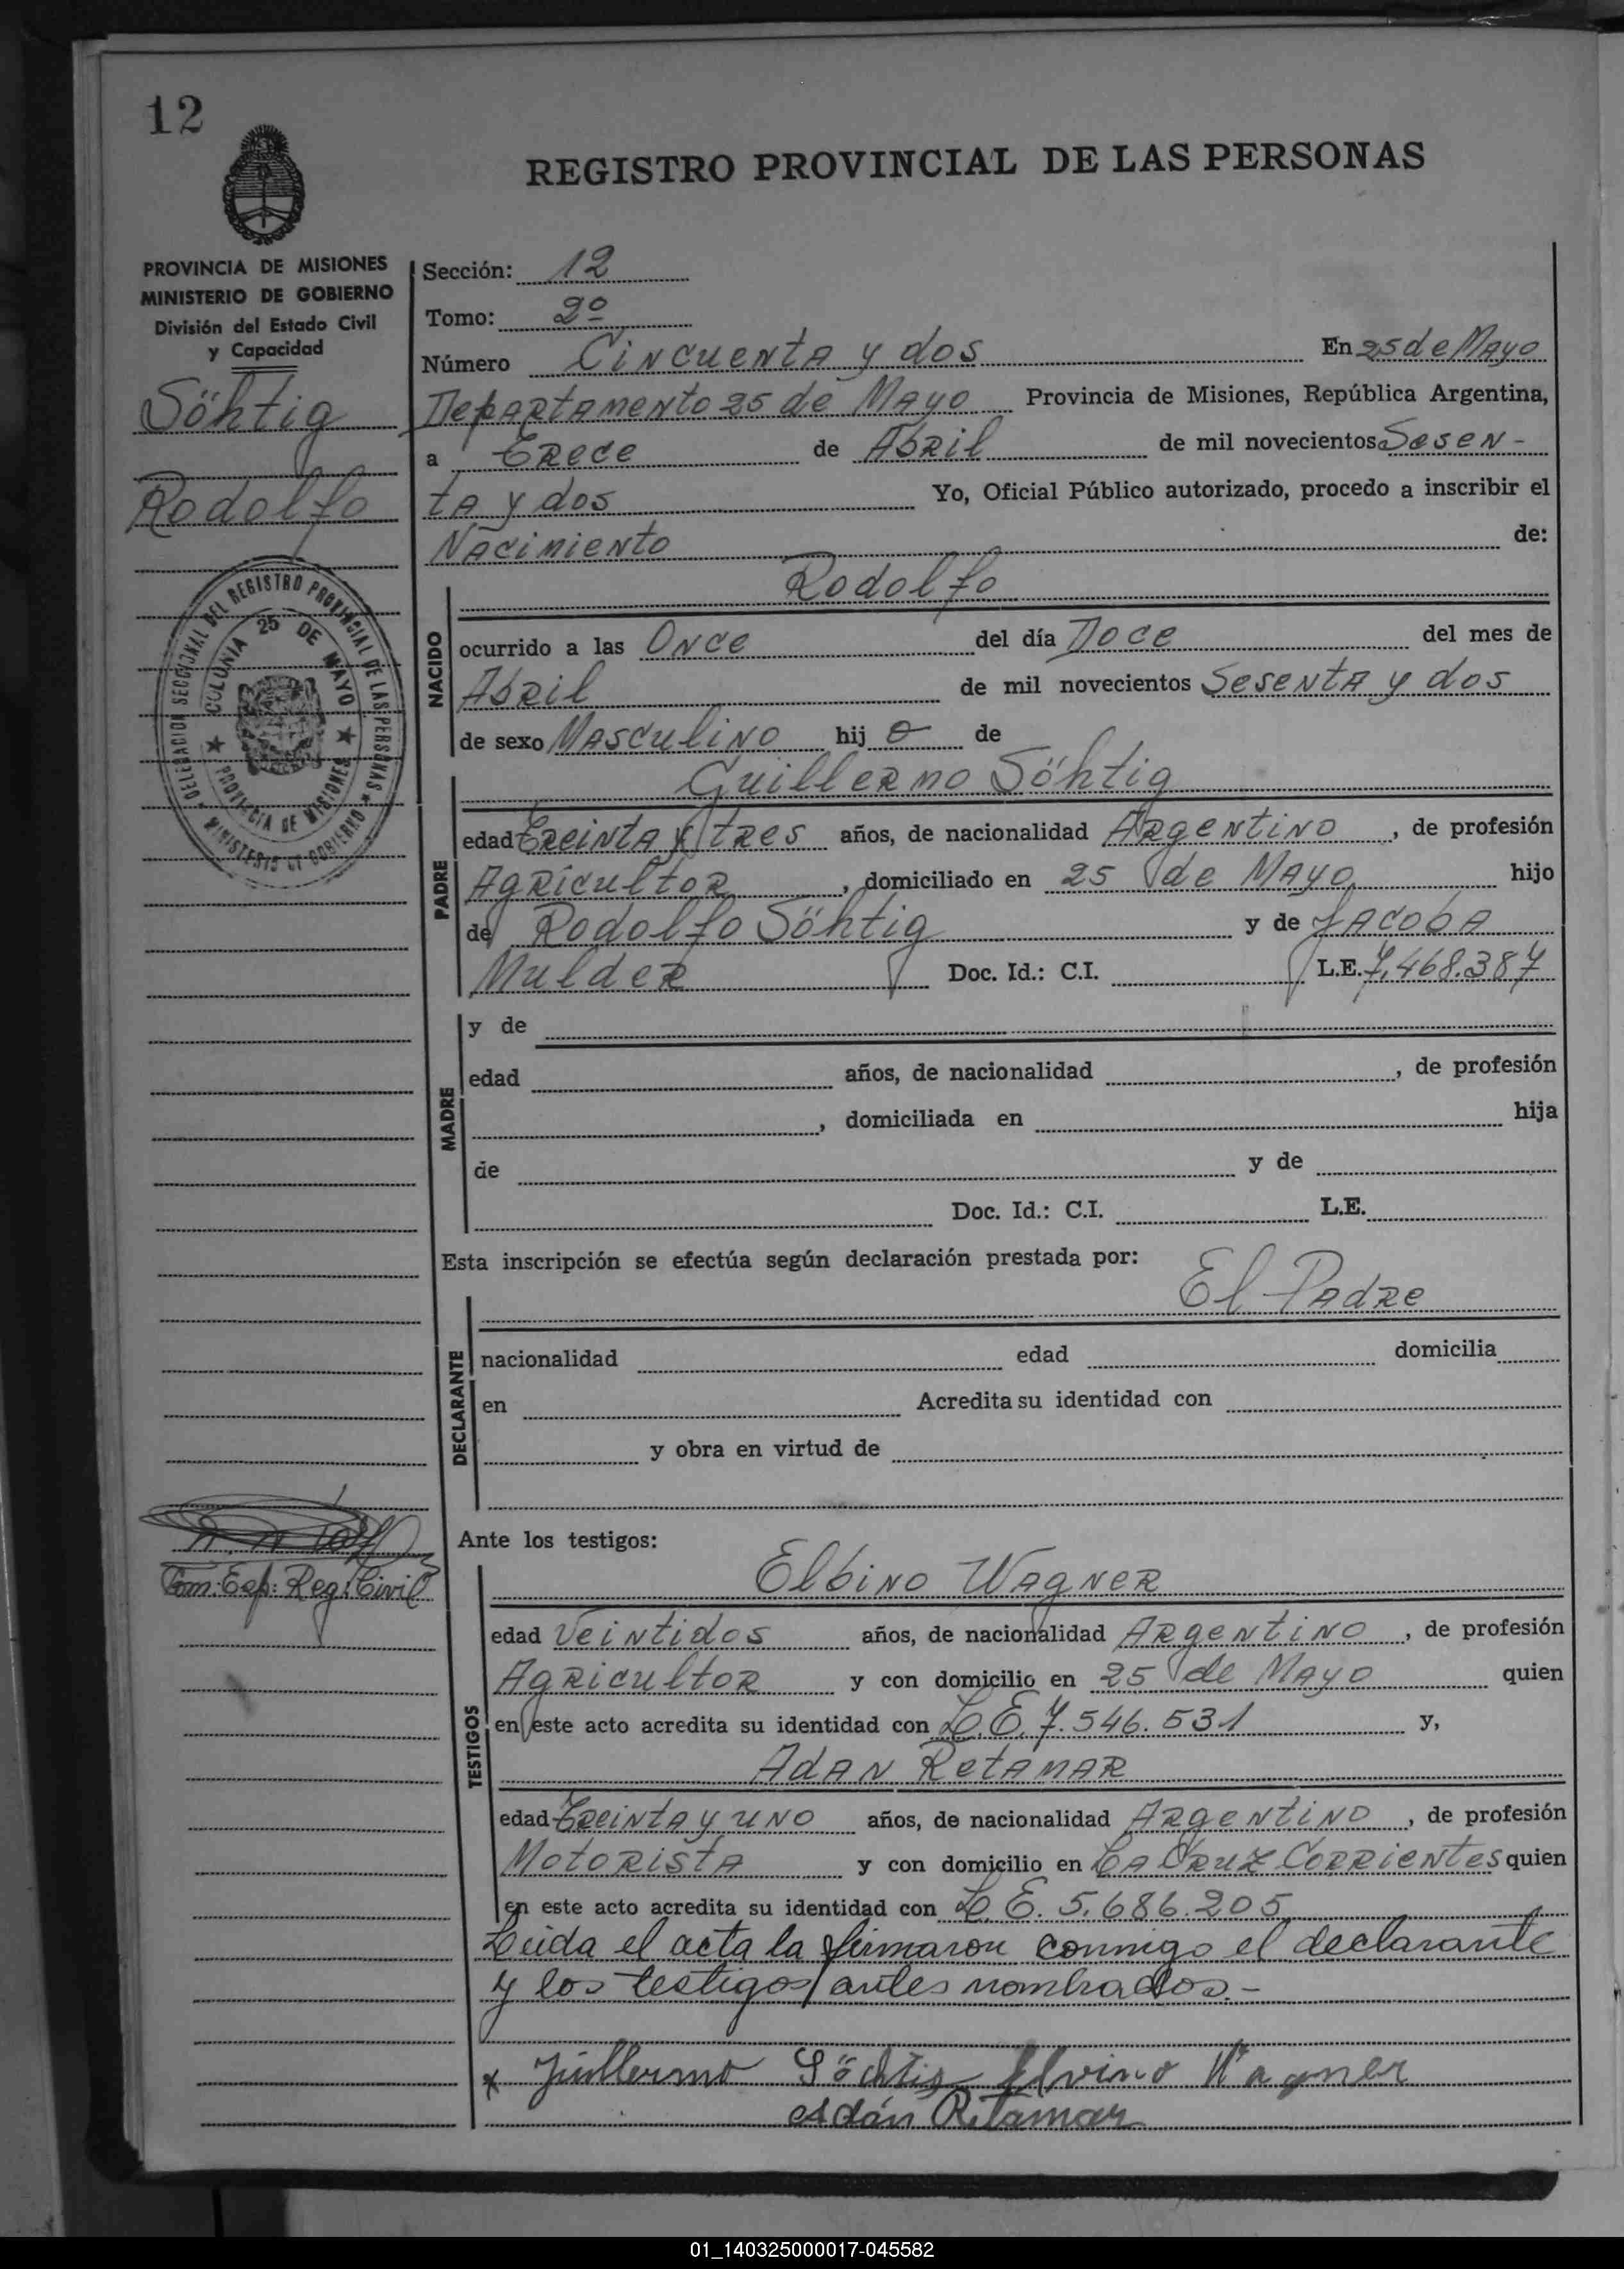 12
REGISTRO PROVINCIAL DE LAS PERSONAS
PROVINCIA DE MISIONES
MINISTERIO DE GOBIERNO
División del Estado Civil
y Capacidad
Söhtig
Rodolfo
DELEGACION SECCIONAL DEL REGISTRO PROVINCIAL DE LAS PERSONAS
COLONIA 25 DE MAYO
PROVINCIA DE MISIONES
MINISTERIO DE GOBIERNO
Sección: 12
Tomo: 2º
Número Cincuenta y dos En 25 de Mayo
Departamento 25 de Mayo Provincia de Misiones, República Argentina,
a Trece de Abril de mil novecientos Sesen-
ta y dos Yo, Oficial Público autorizado, procedo a inscribir el
Nacimiento de:
Rodolfo
NACIDO
ocurrido a las Once del día Doce del mes de
Abril de mil novecientos Sesenta y dos
de sexo Masculino hijo de
Guillermo Söhtig
PADRE
edad Treinta y tres años, de nacionalidad Argentino, de profesión
Agricultor, domiciliado en 25 de Mayo hijo
de Rodolfo Söhtig y de Jacoba
Mulder Doc. Id.: C.I. L.E. 7.468.387
MADRE
y de
edad años, de nacionalidad , de profesión
, domiciliada en hija
de y de
Doc. Id.: C.I. L.E.
Esta inscripción se efectúa según declaración prestada por:
El Padre
DECLARANTE
nacionalidad edad domicilia
en Acredita su identidad con
y obra en virtud de
Ante los testigos:
Reg. Civil
Elbino Wagner
TESTIGOS
edad Veintidos años, de nacionalidad Argentino, de profesión
Agricultor y con domicilio en 25 de Mayo quien
en este acto acredita su identidad con L.E. 7.546.531 y,
Adan Retamar
edad Treinta y uno años, de nacionalidad Argentino, de profesión
Motorista y con domicilio en La Cruz Corrientes quien
en este acto acredita su identidad con L.E. 5.686.205
Leida el acta la firmaron conmigo el declarante
y los testigos antes nombrados.-
Guillermo Söchtig Elvino Wagner
Adán Retamar
01_140325000017-045582